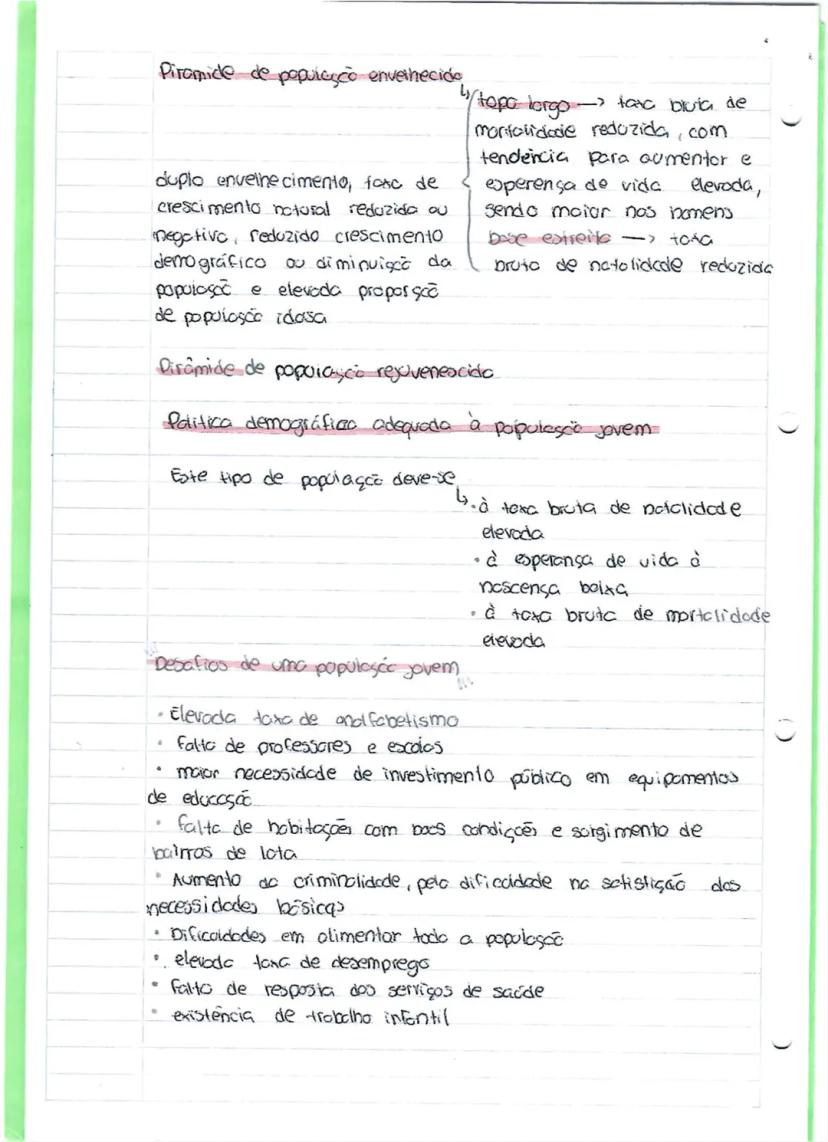 Piramide de população envelhecida
↳ topo largo → taxa bruta de
mortalidade reduzida, com
tendência para aumentar e
esperença de vida elevada,
sendo maior nos homens
base estreita → taxa
bruta de natalidade reduzida
duplo envelhecimento, taxa de
crescimento natural reduzida ou
negativa, reduzido crescimento
demográfico ou diminuição da
população e elevada proporsção
de população idosa
Pirâmide de população rejuvenescida
Política demográfica adequada à população jovem
Este tipo de população deve-se
↳ • à taxa bruta de natalidade
elevada
• à esperança de vida à
nascença baixa
• à taxa bruta de mortalidade
elevada
Desafios de uma população jovem
• Elevada taxa de analfabetismo
• falta de professores e escolas
• maior necessidade de investimento público em equipamentos
de educação
• falta de habitações com boas condições e surgimento de
bairros de lata
• Aumento da criminalidade, pela dificuldade na satistição das
necessidades básicas
• Dificuldades em alimentar toda a população
• elevada taxa de desemprego
• falta de resposta dos serviços de saúde
• existência de trabalho infantil